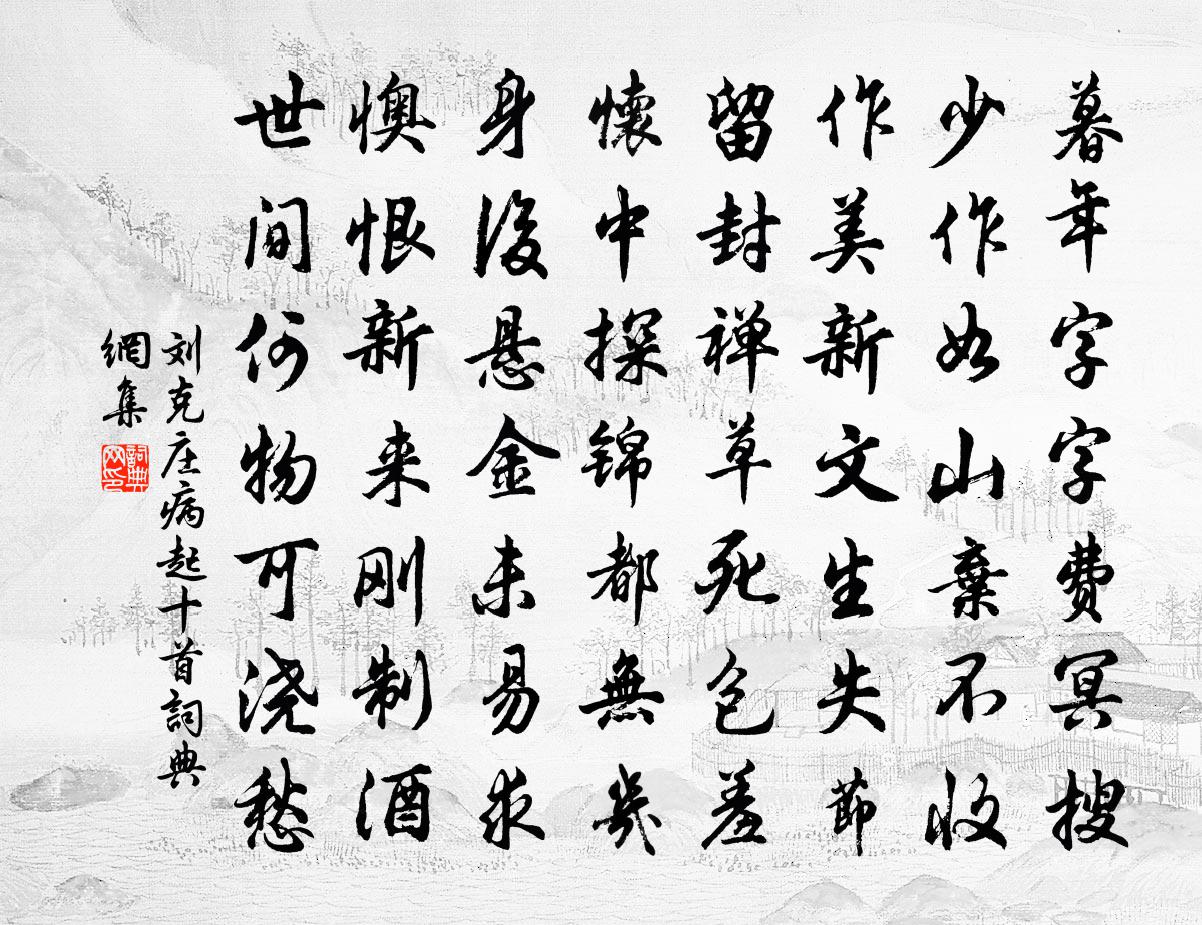 暮年字字費冥搜
少作如山棄不收
作美新文生失節
留封禅草死包羞
懷中探锦都無幾
身後悬金未易求
懊恨新来刚制酒
世间何物可浇愁
刘克庄病起十首詞典
網集